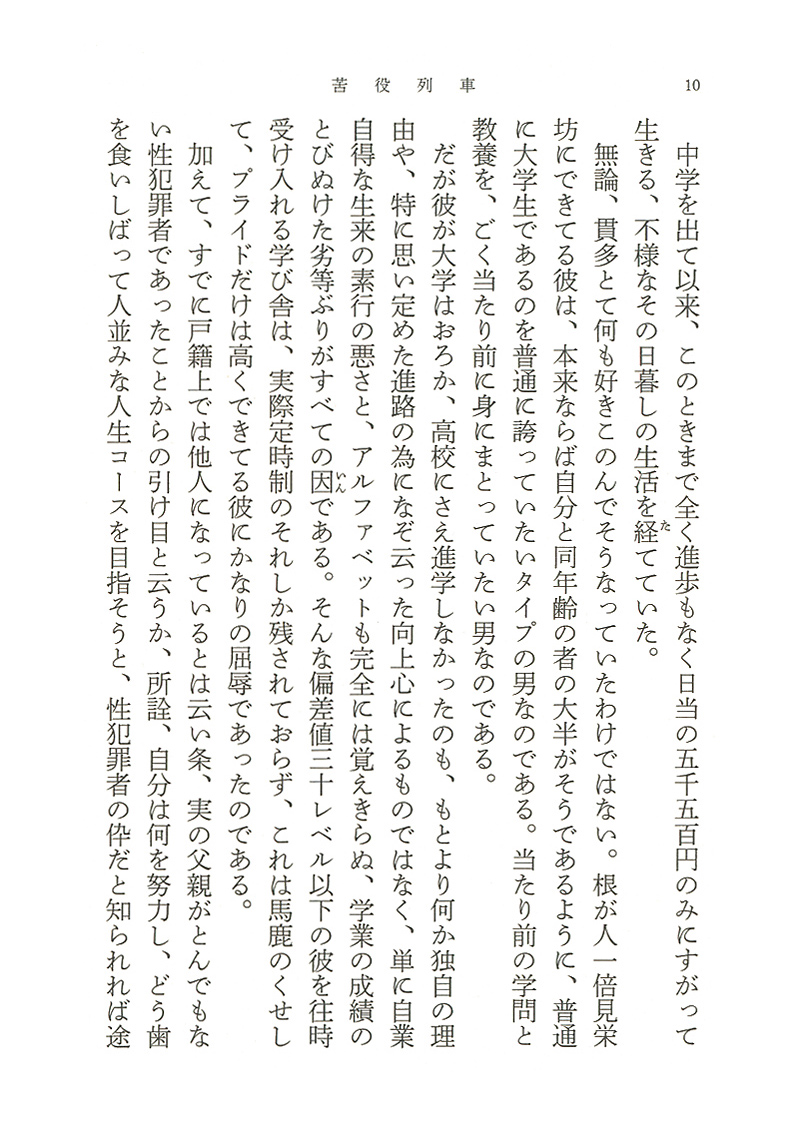 苦役列車
10
中学を出て以来、このときまで全く進歩もなく日当の五千五百円のみにすがって
生きる、不様なその日暮しの生活を経てていた。
た
無論、貫多とて何も好きこのんでそうなっていたわけではない。根が人一倍見栄
坊にできてる彼は、本来ならば自分と同年齢の者の大半がそうであるように、普通
に大学生であるのを普通に誇っていたいタイプの男なのである。当たり前の学問と
教養を、ごく当たり前に身にまとっていたい男なのである。
だが彼が大学はおろか、高校にさえ進学しなかったのも、もとより何か独自の理
由や、特に思い定めた進路の為になぞ云った向上心によるものではなく、単に自業
自得な生来の素行の悪さと、アルファベットも完全には覚えきらぬ、学業の成績の
とびぬけた劣等ぶりがすべての因である。そんな偏差値三十レベル以下の彼を往時
いん
受け入れる学び舎は、実際定時制のそれしか残されておらず、これは馬鹿のくせし
て、プライドだけは高くできてる彼にかなりの屈辱であったのである。
加えて、すでに戸籍上では他人になっているとは云い条、実の父親がとんでもな
い性犯罪者であったことからの引け目と云うか、所詮、自分は何を努力し、どう歯
を食いしばって人並みな人生コースを目指そうと、性犯罪者の倅だと知られれば途